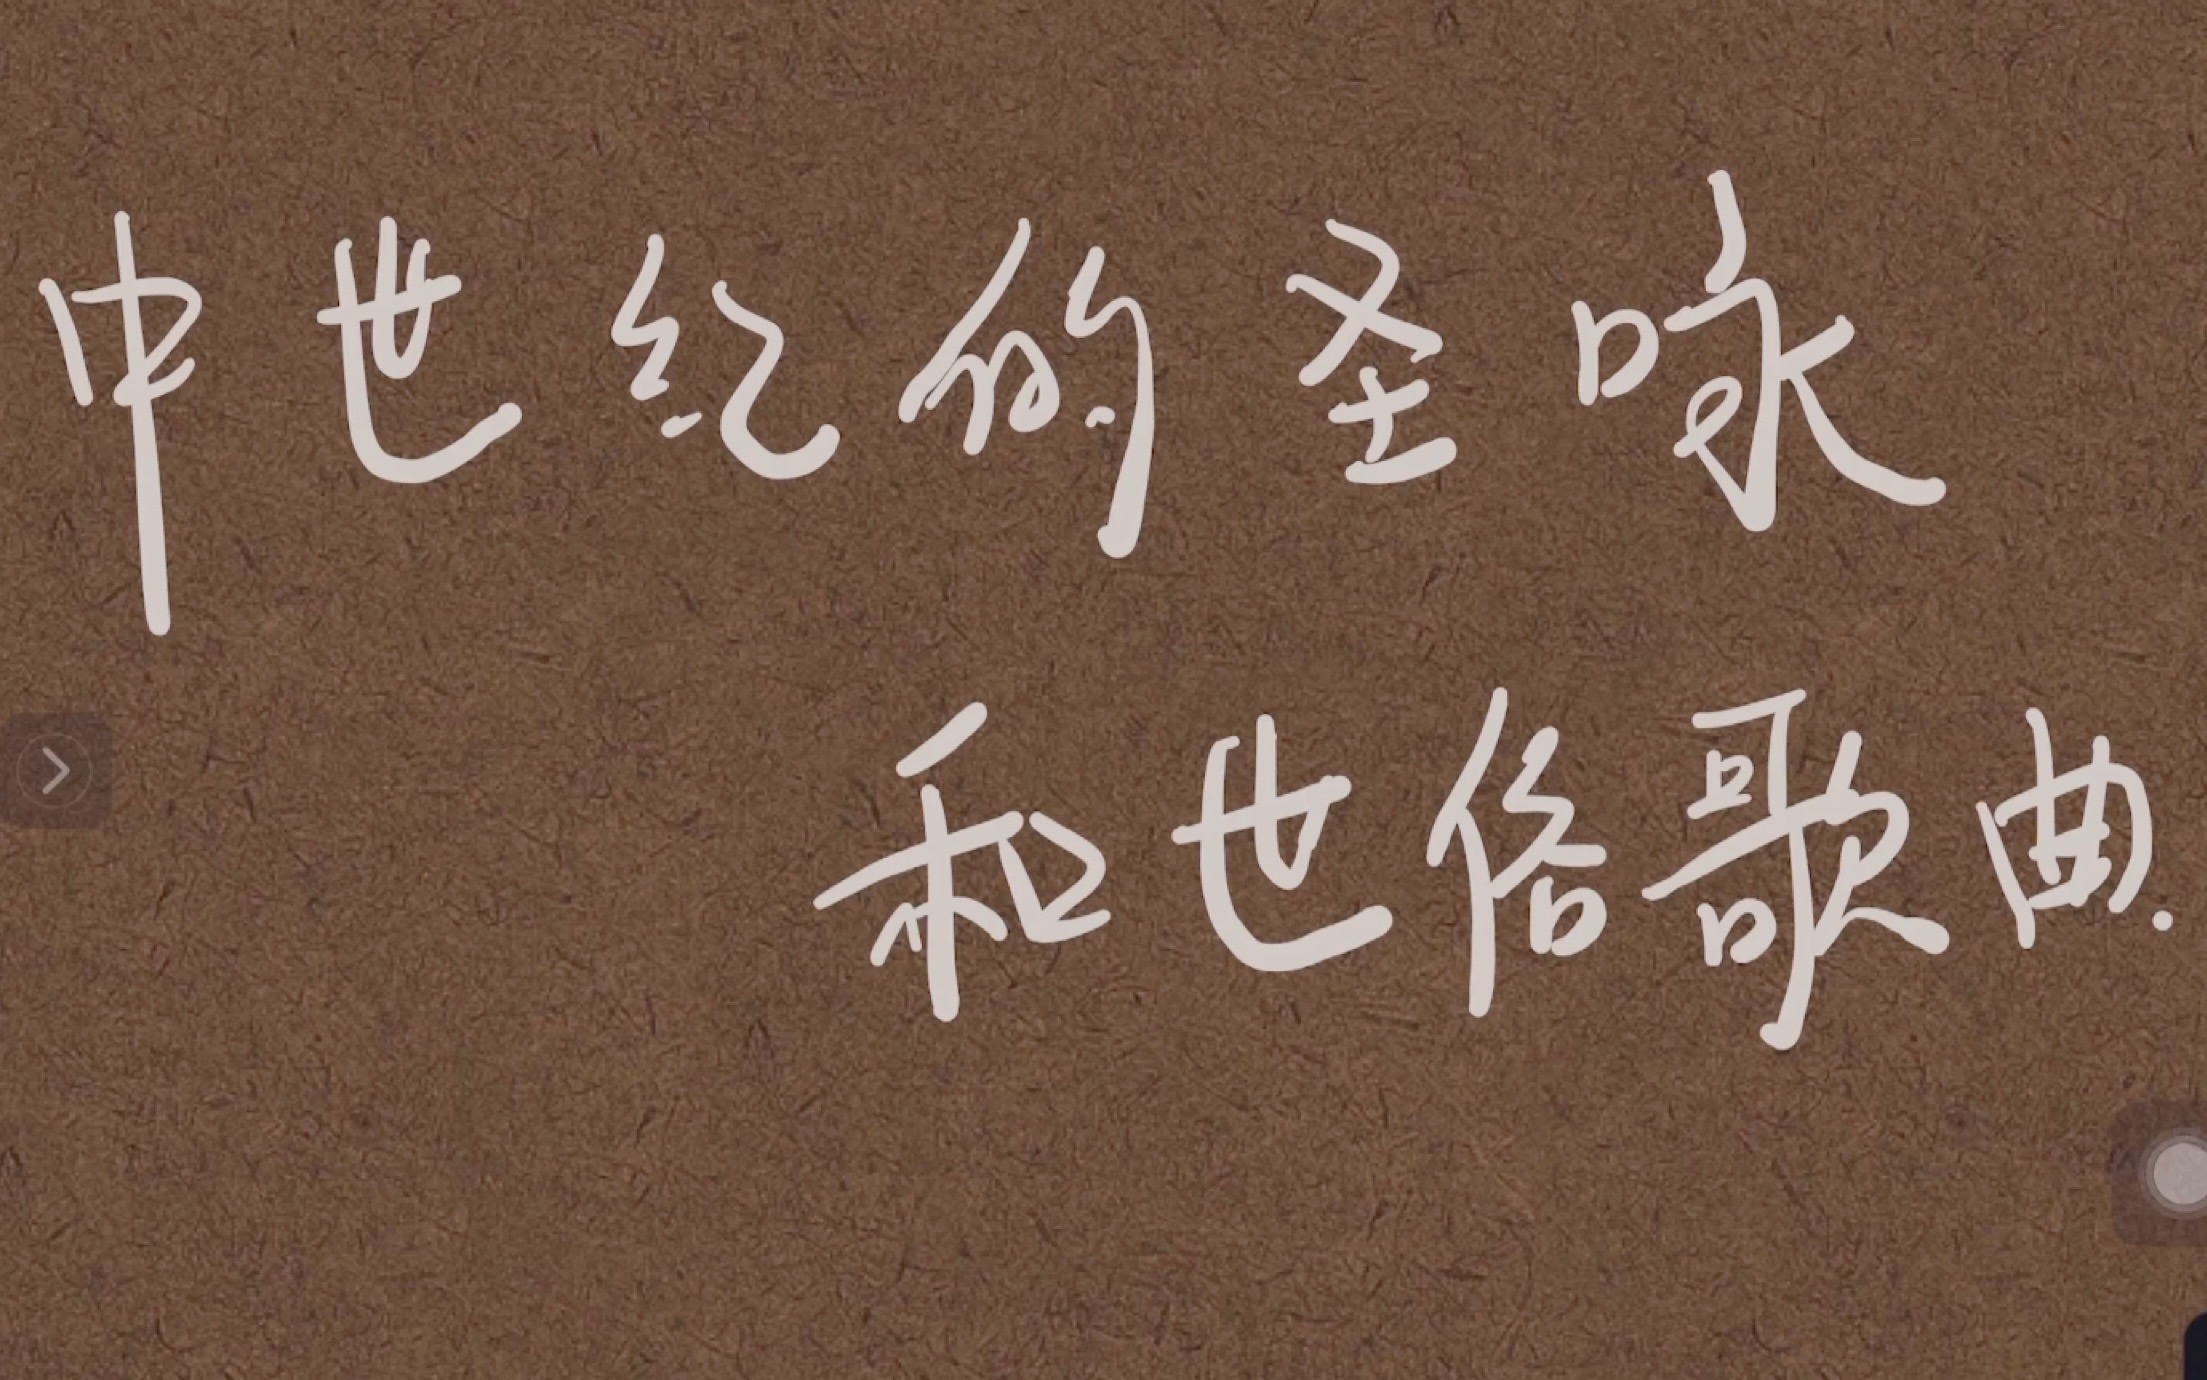 中世纪的圣咏
和世俗歌曲.